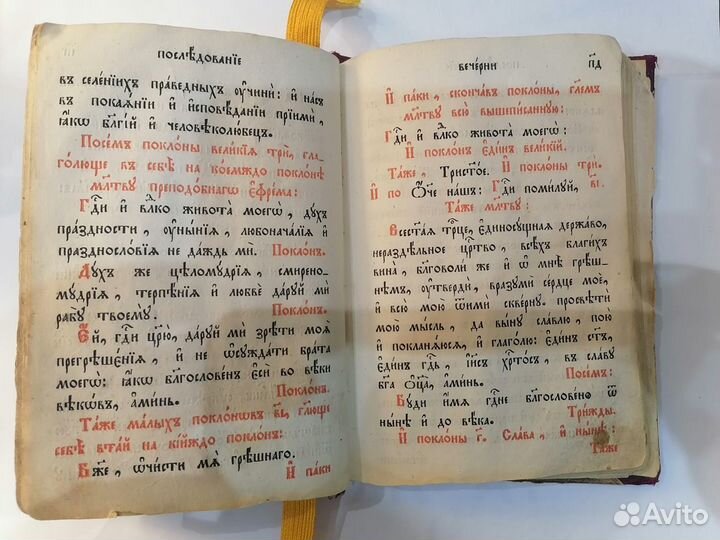 послѣ́дованїе
въ селе́нїихъ пра́ведныхъ ᲂу҆чинѝ: и҆ на́съ
въ покаѧ́нїи и҆ и҆сповѣ́данїи прїимѝ,
ꙗ҆́кѡ бл҃гі́й и҆ человѣколю́бецъ.
Посе́мъ покло́ны вели̑кїѧ трѝ, гла-
го́люще въ себѣ̀ на ко́емждо покло́нѣ
мл҃тву преподо́бнагѡ є҆фре́ма:
Гдⷭ҇и и҆ влⷣко живота̀ моегѡ̀, дꙋ́хъ
пра́здности, ᲂу҆ны́нїѧ, любонача́лїѧ и҆
праздносло́вїѧ не да́ждь мѝ. Покло́нъ.
Дꙋ́хъ же цѣломꙋ́дрїѧ, смирено-
мꙋ́дрїѧ, терпѣ́нїѧ и҆ любвѐ да́рꙋй мѝ
рабꙋ̀ твоемꙋ̀. Покло́нъ.
Є҆́й, гдⷭ҇и цр҃ю̀, да́рꙋй мѝ зрѣ́ти моѧ̑
прегрѣшє́нїѧ, и҆ не ѡ҆сꙋжда́ти бра́та
моегѡ̀: ꙗ҆́кѡ бл҃гослове́нъ є҆сѝ во вѣ́ки
вѣкѡ́въ, а҆ми́нь. Покло́нъ.
Та́же ма́лыхъ покло́нѡвъ в҃і, гл҃юще
себѣ̀ вта́й на кі́йждо покло́нъ:
Бж҃е, ѡ҆чи́сти мѧ̀ грѣ́шнаго.
И҆ па́ки
вече́рни п҃д
И҆ па́ки, сконча́въ покло́ны, гл҃емъ
мл҃тву всю̀ вышепи́саннꙋю:
Гдⷭ҇и и҆ влⷣко живота̀ моегѡ̀:
И҆ покло́нъ є҆ди́нъ вели́кїй.
Та́же, Трист҃о́е. И҆ покло́ны трѝ.
И҆ по Ѻ҆́ч҃е на́шъ: Гдⷭ҇и поми́лꙋй, в҃і.
Та́же мл҃твꙋ:
Всест҃а́ѧ трⷪ҇це, є҆диносꙋ́щнаѧ держа́во,
нераздѣ́льное црⷭ҇тво, всѣ́хъ благи́хъ
вина̀, бл҃говолѝ же и҆ ѡ҆ мнѣ̀ грѣ́ш-
нѣмъ, ᲂу҆твердѝ, вразꙋмѝ се́рдце моѐ,
и҆ всю̀ мою̀ ѿимѝ сквє́рнꙋ. просвѣтѝ
мою̀ мы́сль, да вы́нꙋ сла́влю, пою̀
и҆ покланѧ́юсѧ, и҆ глаго́лю: Є҆ди́нъ ст҃ъ,
Є҆ди́нъ гдⷭ҇ь, і҆и҃съ хрⷭ҇то́съ, въ сла́вꙋ
бг҃а ѻ҆ц҃а̀, а҆ми́нь. Посе́мъ:
Бꙋ́ди и҆́мѧ гдⷭ҇не бл҃гослове́но ѿ
ны́нѣ и҆ до вѣ́ка. Три́жды.
И҆ покло́ны г҃. Сла́ва, и҆ ны́нѣ:
Та́же
Avito